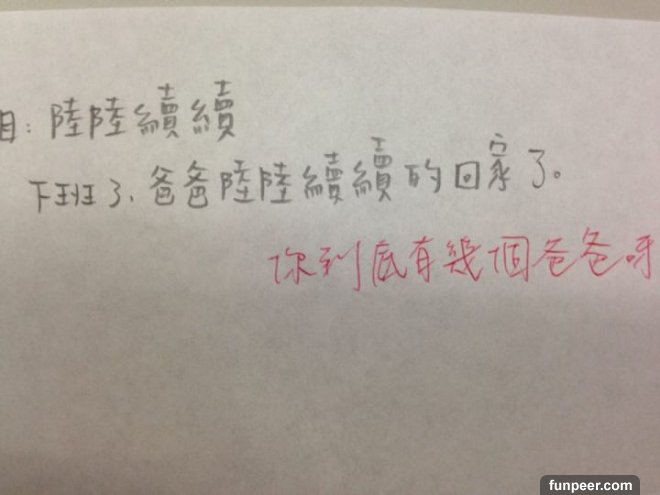 目：陸陸續續
下班了、爸爸陸陸續續的回家了。
你到底有幾個爸爸呀
funpeer.com